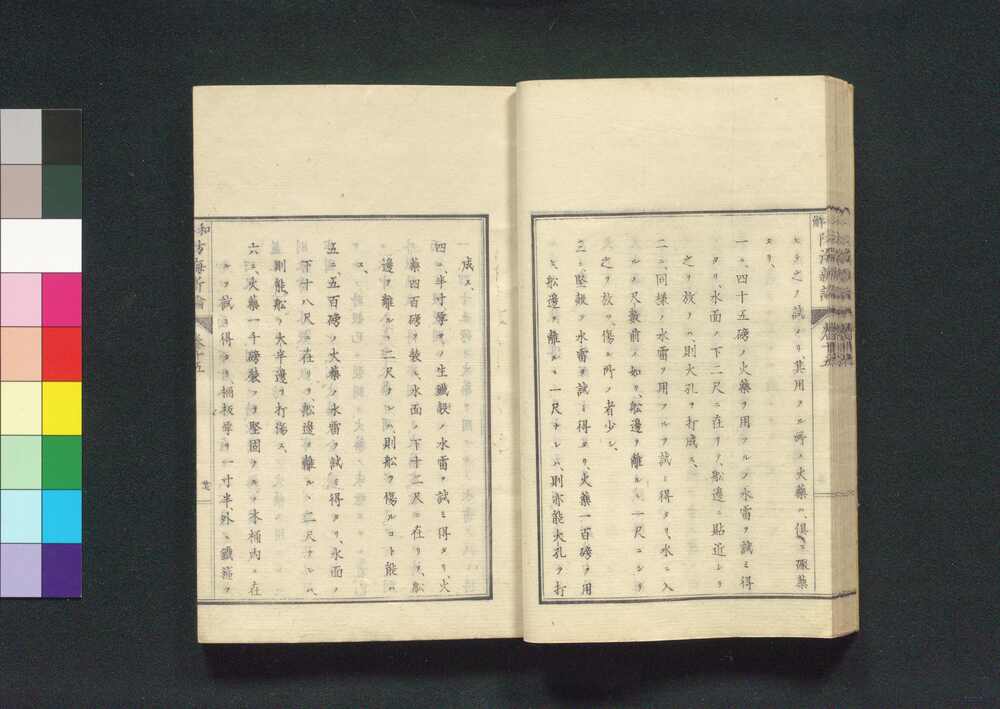 ヒテ之ヲ試シタリ、其用フル所ノ火藥ハ、俱ニ礟藥
ナリ、
一ニ、四十五磅ノ火藥ヲ用フルノ水雷ヲ試ミ得
タリ、水面ノ下二尺ニ在リテ、船邊ニ貼近シテ
之ヲ放ツニ、則大孔ヲ打成ス、
二ニ、同樣ノ水雷ヲ用フルヲ試ミ得タリ、水ニ入
ルノ尺數前ノ如ク、船邊ヲ離ルヽ一尺ニシテ
之ヲ放ツ、傷ル所ノ者少シ、
三ニ、堅殼ノ水雷ヲ試ミ得タリ、火藥一百磅ヲ用
ヒ、船邊ヲ離ルヽ一尺ナレハ、則亦能大孔ヲ打
成ス、
四ニ、半寸厚サノ生鐵殼ノ水雷ヲ試ミ得タリ、火
藥四百磅ヲ裝ヒ、水面ノ下十二尺ニ在リテ、船
邊ヲ離ルヽ二尺ナレハ、則船ヲ傷ルコト能ハ
ス、
五ニ、五百磅ノ火藥ノ水雷ヲ試ミ得タリ、水面ノ
下十八尺ニ在リテ、船邊ヲ離ルヽ二尺ナレハ、
則能船ノ大半邊ヲ打傷ス、
六ニ、火藥一千磅裝フテ堅固ナルノ木桶內ニ在
ルヲ試ミ得タリ、桶板厚サ一寸半外ニ鐵箍ヲ
防海新論 卷十五
廿